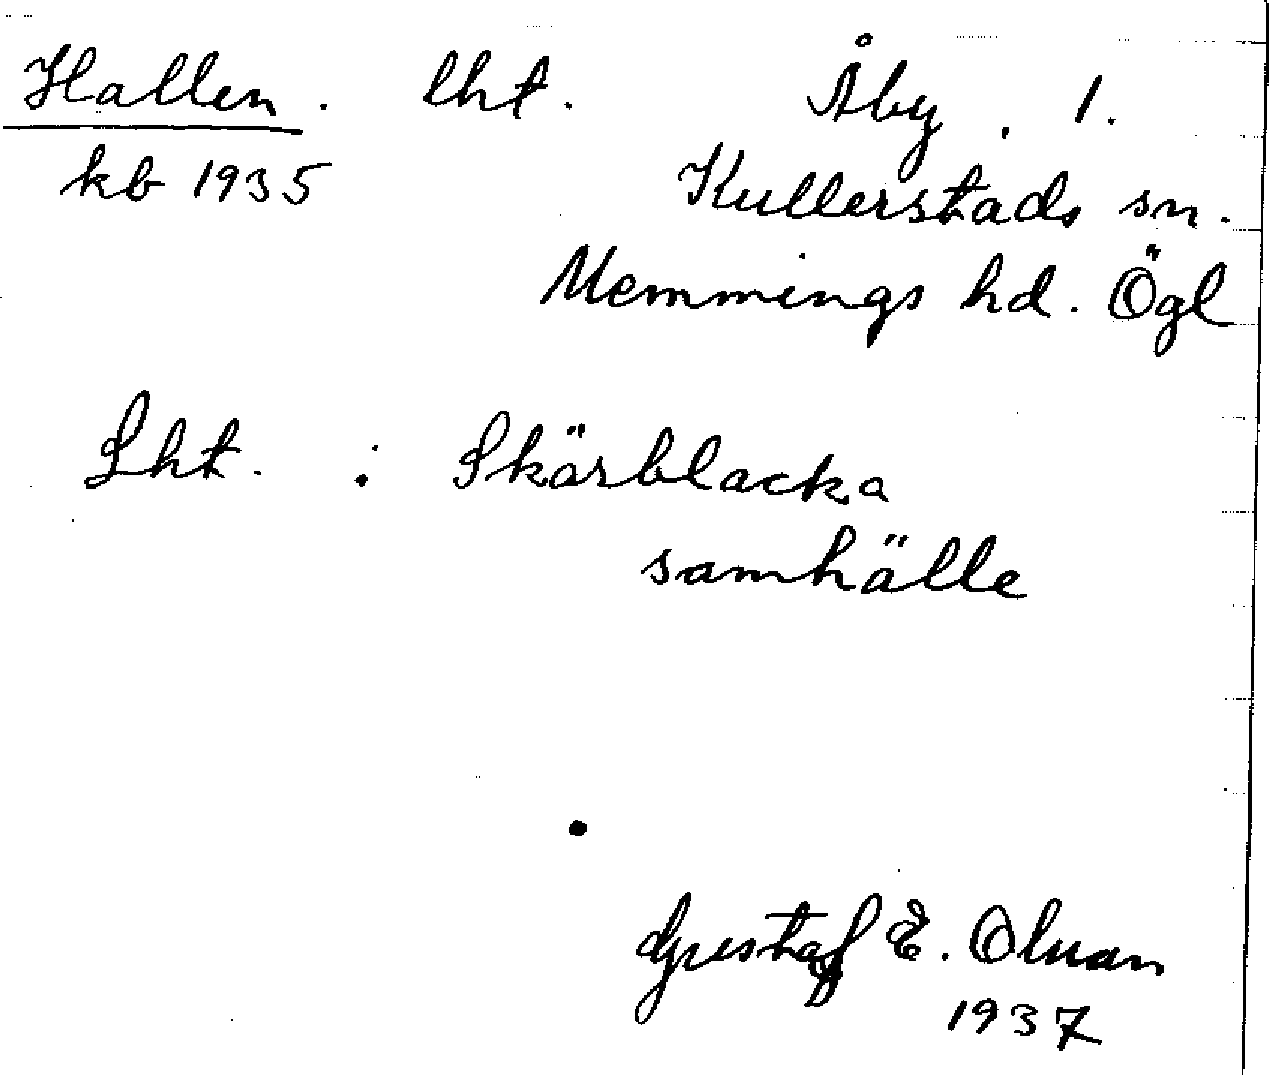 Hallen. lht. Åby. 1.
kb 1935
Kullerstads sn.
Memmings hd. Ögl
Lht. : Skärblacka
samhälle
Gustaf E. Olman
1937